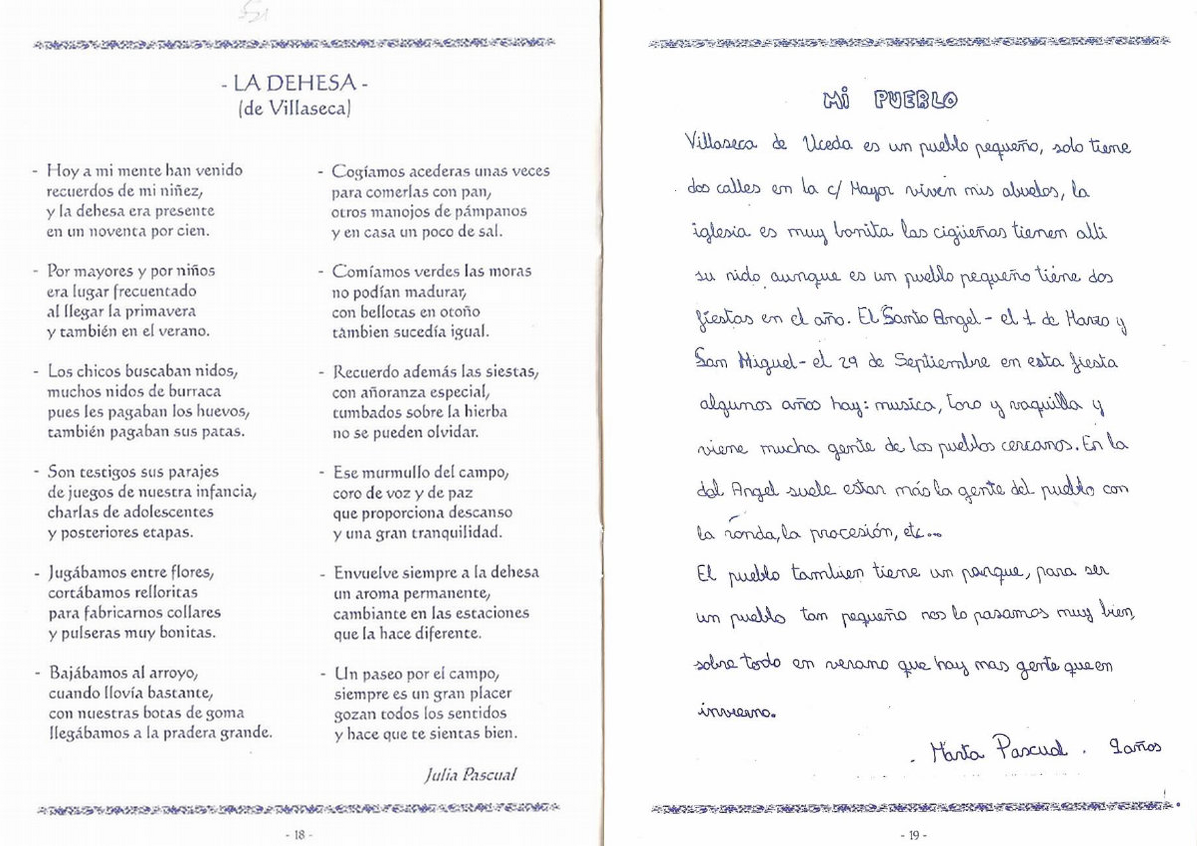 - LA DEHESA -
(de Villaseca)
- Hoy a mi mente han venido
recuerdos de mi niñez,
y la dehesa era presente
en un noventa por cien.
- Por mayores y por niños
era lugar frecuentado
al llegar la primavera
y también en el verano.
- Los chicos buscaban nidos,
muchos nidos de burraca
pues les pagaban los huevos,
también pagaban sus patas.
- Son testigos sus parajes
de juegos de nuestra infancia,
charlas de adolescentes
y posteriores etapas.
- Jugábamos entre flores,
cortábamos relloritas
para fabricarnos collares
y pulseras muy bonitas.
- Bajábamos al arroyo,
cuando llovía bastante,
con nuestras botas de goma
llegábamos a la pradera grande.
- Cogíamos acederas unas veces
para comerlas con pan,
otros manojos de pámpanos
y en casa un poco de sal.
- Comíamos verdes las moras
no podían madurar,
con bellotas en otoño
tambien sucedía igual.
- Recuerdo además las siestas,
con añoranza especial,
tumbados sobre la hierba
no se pueden olvidar.
- Ese murmullo del campo,
coro de voz y de paz
que proporciona descanso
y una gran tranquilidad.
- Envuelve siempre a la dehesa
un aroma permanente,
cambiante en las estaciones
que la hace diferente.
- Un paseo por el campo,
siempre es un gran placer
gozan todos los sentidos
y hace que te sientas bien.
Julia Pascual
- 18 -
Mi PUEBLO
Villaseca de Uceda es un pueblo pequeño, solo tiene
dos calles en la c/ Mayor viven mis abuelos, la
iglesia es muy bonita las cigüeñas tienen alli
su nido aunque es un pueblo pequeño tiene dos
fiestas en el año. El Santo Angel - el 1 de Marzo y
San Miguel - el 29 de Septiembre en esta fiesta
algunos años hay: musica, toro y vaquilla y
viene mucha gente de los pueblos cercanos. En la
del Angel suele estar más la gente del pueblo con
la ronda, la procesión, etc...
El pueblo tambien tiene un parque, para ser
un pueblo tan pequeño nos lo pasamos muy bien,
sobre todo en verano que hay mas gente que en
invierno.
Marta Pascual. 9 años
- 19 -